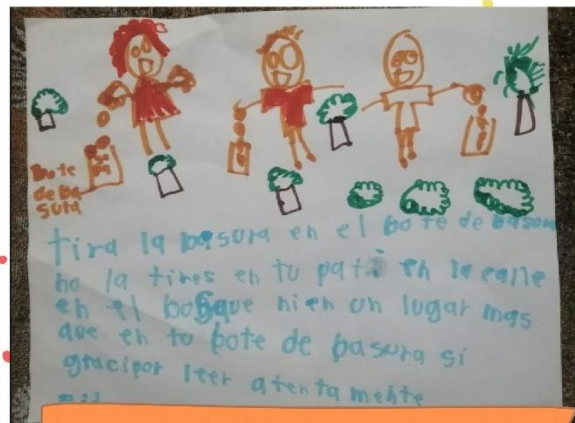 Bote
de ba
sura
tira la basura en el bote de basura
no la tires en tu pati en la calle
en el bosque ni en un lugar mas
que en tu bote de basura si
gracipor leer atentamente